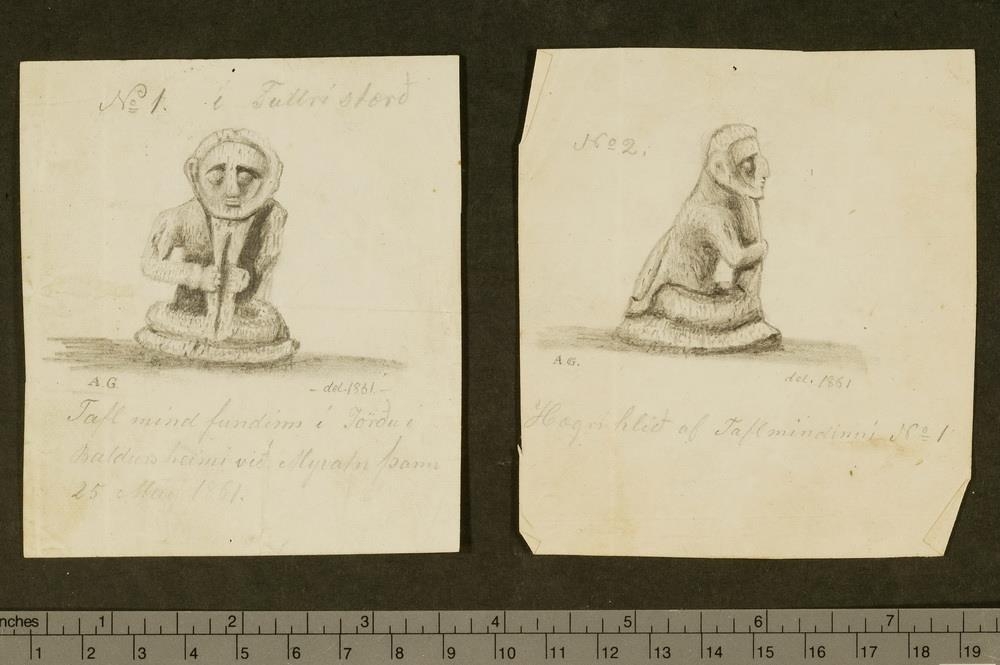 No 1. í Fullri stærð
A.G.
- del. 1861 -
Tafl mind fundinn í Jörðu í
Baldursheimi við Myvatn þann
25 May 1861.
No 2.
A.G.
del. 1861
Hægri hlið af Taflmindinni No 1
nches 1 2 3 4 5 6 7
1 2 3 4 5 6 7 8 9 10 11 12 13 14 15 16 17 18 19